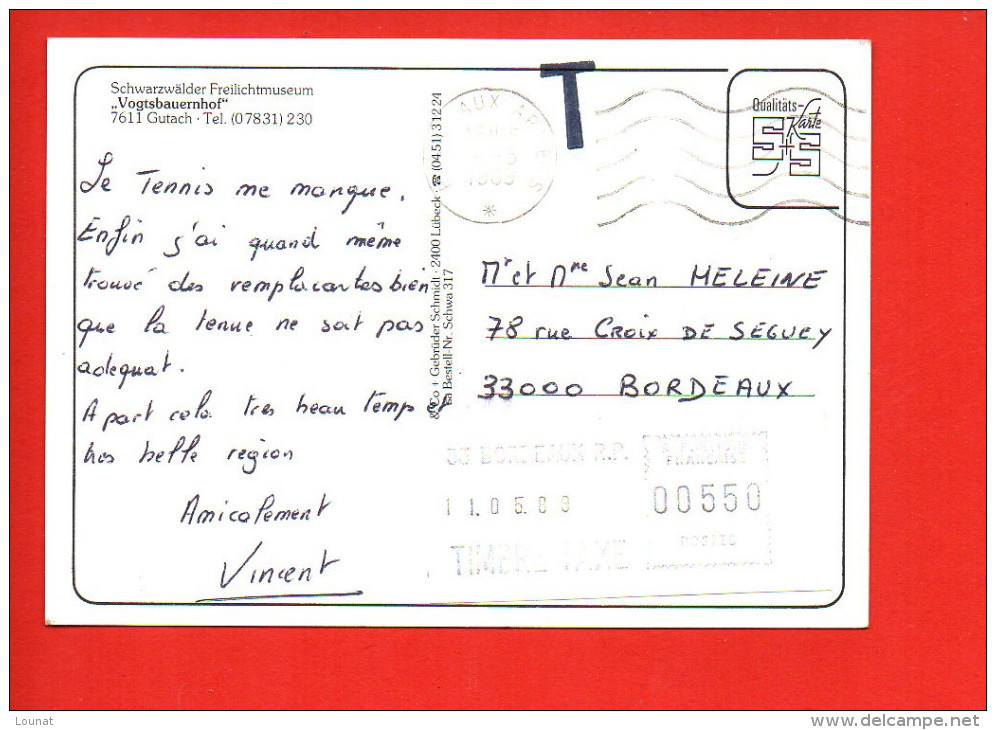 Schwarzwälder Freilichtmuseum
„Vogtsbauernhof"
7611 Gutach · Tel. (07831) 230
Le Tennis me manque.
Enfin j'ai quand même
trouvé des remplacantes bien
que la tenue ne soit pas
adequat.
A part cela très beau temps et
très belle region
Amicalement
Vincent
& Co + Gebrüder Schmidt · 2400 Lübeck · ☎ (0451) 31224
Bestell-Nr. Schwa 317
AUX
*
T
Qualitäts-
Karte
S+S
Mr et Mme Jean MELEINE
78 rue CROIX DE SEGUEY
33000 BORDEAUX
33 BORDEAUX R.P.
11.05.89
TIMBRE TAXE
00550
POSTES
Lounat
www.delcampe.net